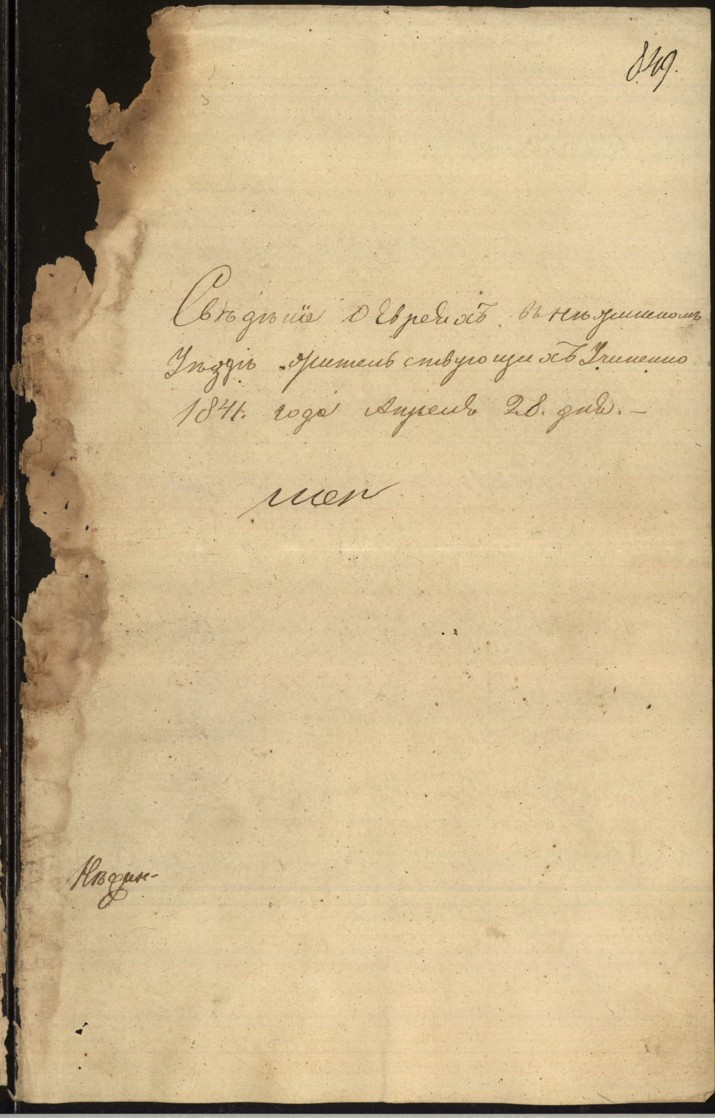 849.
Свѣдѣніе О Евреяхъ. въ Нѣжинскомъ
Уѣздѣ жительствующихъ Учинено
1841. года Апреля 28. дня. —
Нѣжин-